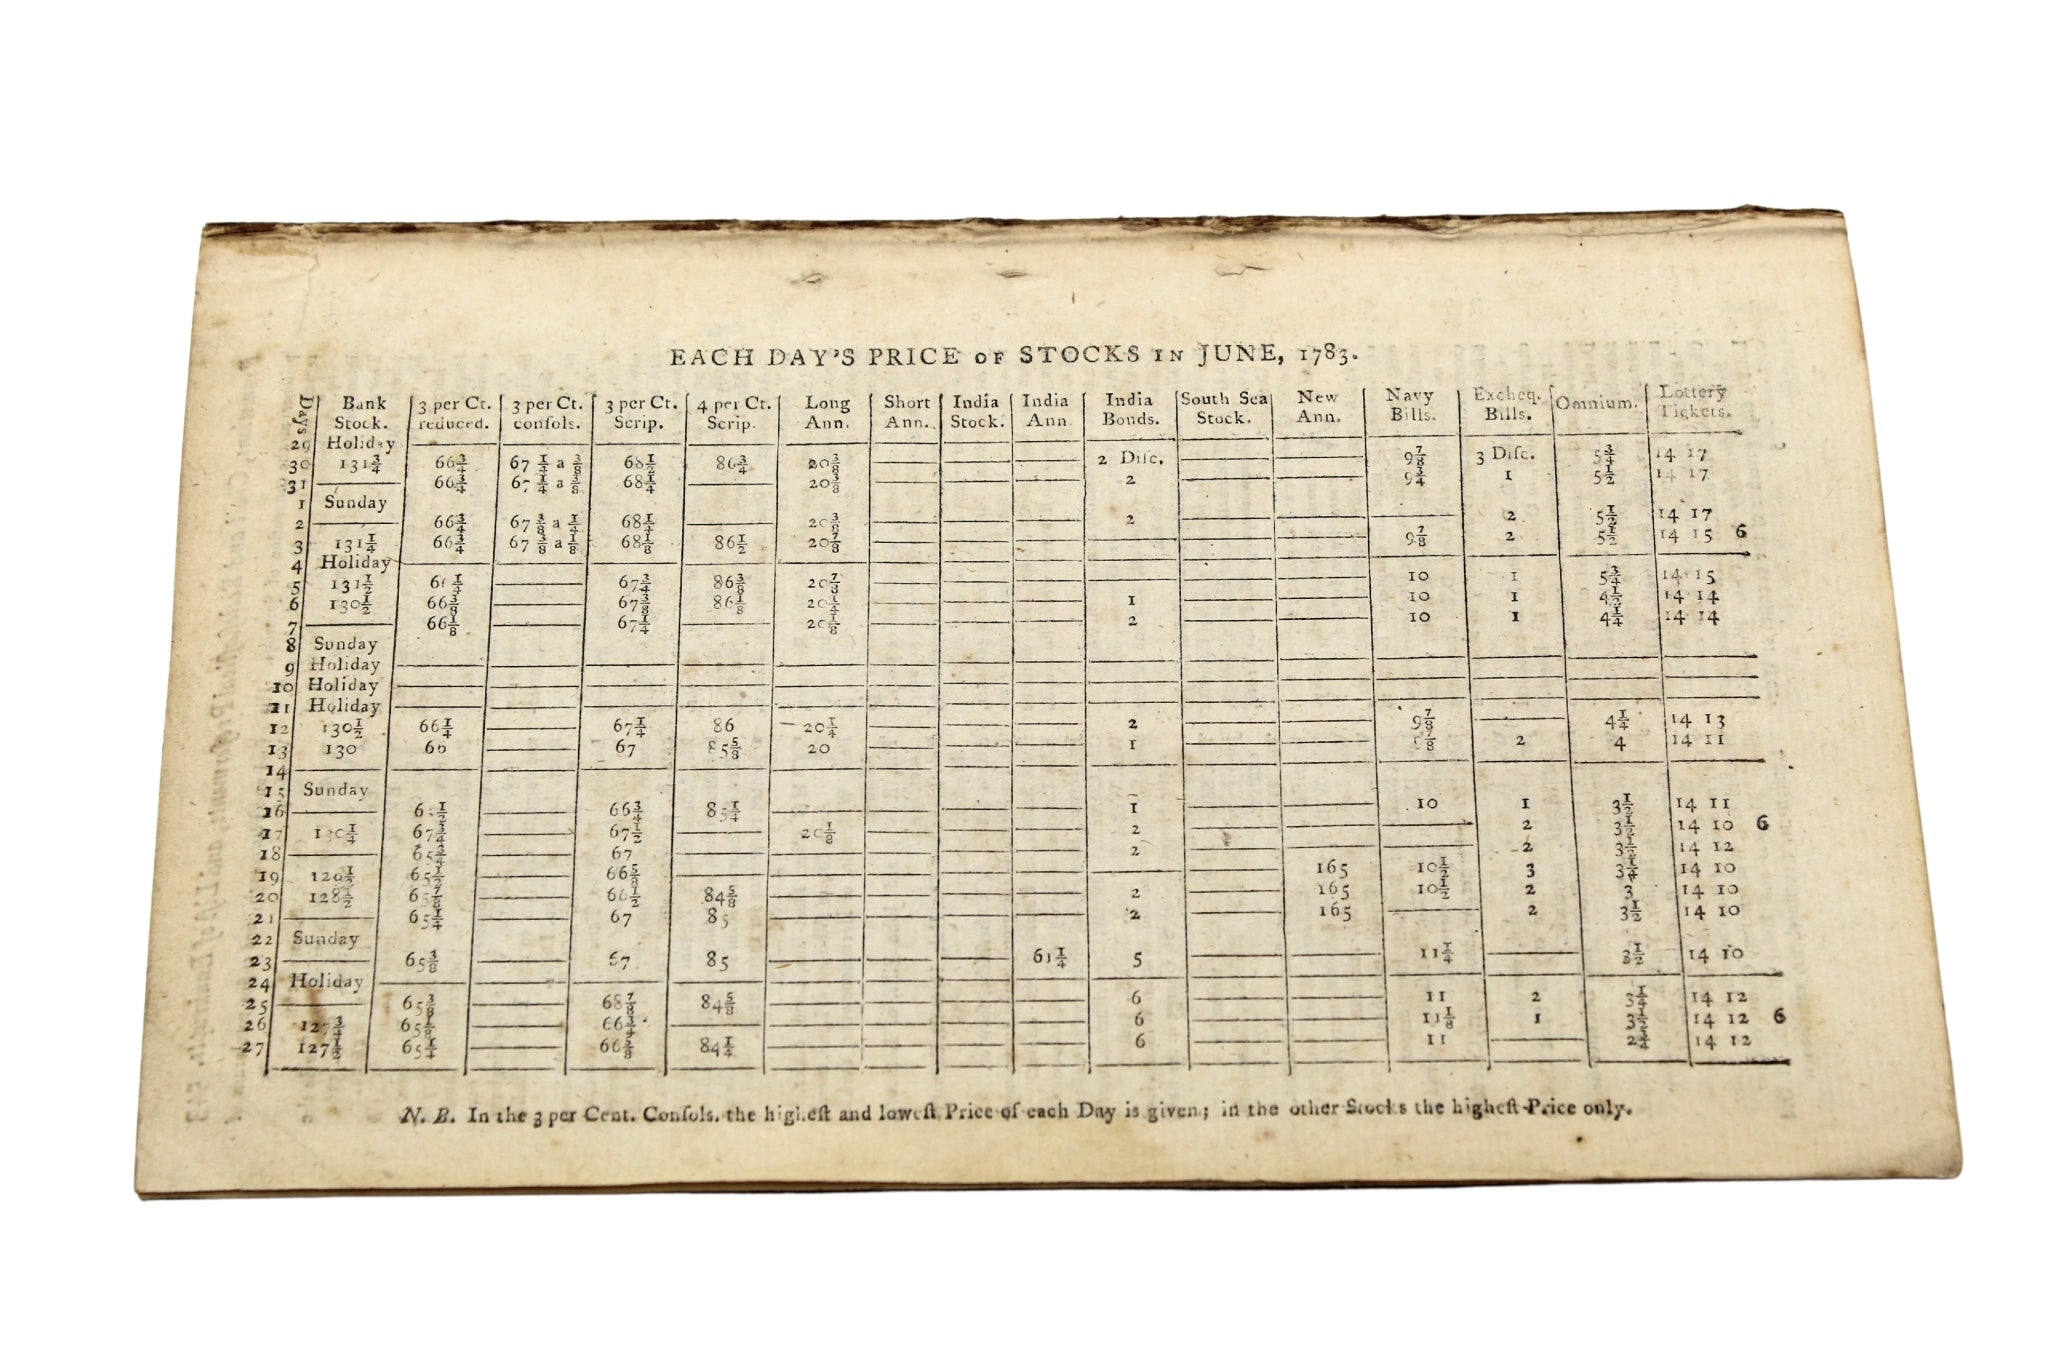 EACH DAY'S PRICE OF STOCKS IN JUNE, 1783.
Days Bank Stock. 3 per Ct. reduced. 3 per Ct. conſols. 3 per Ct. Scrip. 4 per Ct. Scrip. Long Ann. Short Ann. India Stock. India Ann India Bonds. South Sea Stock. New Ann. Navy Bills. Excheq. Bills. Omnium. Lottery Tickets.
29 Holiday
30 131¾ 66¾ 67 ¼ a ⅜ 68½ 86¾ 20⅜ 2 Diſc. 9⅞ 3 Diſc. 5¾ 14 17
31 66¾ 67 ¼ a ⅜ 68¼ 20⅜ 2 9¾ 1 5½ 14 17
1 Sunday
2 66¾ 67 ⅜ a ¼ 68¼ 20⅜ 2 2 5½ 14 17
3 131¼ 66¾ 67 ⅜ a ⅛ 68⅛ 86½ 20⅞ 9⅞ 2 5½ 14 15 6
4 Holiday
5 131½ 67¾ 86⅜ 20⅞ 10 1 5¾ 14 15
6 130½ 66⅜ 67⅜ 86⅛ 20¼ 1 10 1 4½ 14 14
7 66⅛ 67¼ 20⅛ 2 10 1 4¼ 14 14
8 Sunday
9 Holiday
10 Holiday
11 Holiday
12 130½ 66¼ 67¼ 86 20¼ 2 9⅞ 4¼ 14 13
13 130 66 67 85⅝ 20 1 2 4 14 11
14
15 Sunday
16 66¾ 85¼ 1 10 1 3½ 14 11
17 67¾ 67½ 20⅛ 2 2 3½ 14 10 6
18 65¾ 67 2 2 3½ 14 12
19 65½ 66⅝ 165 10½ 3 3¼ 14 10
20 128½ 65⅞ 66½ 84⅝ 2 165 10½ 2 3 14 10
21 65¼ 67 85 2 165 2 3½ 14 10
22 Sunday
23 65⅜ 67 85 61¼ 5 11¼ 3½ 14 10
24 Holiday
25 65⅜ 68⅞ 84⅝ 6 11 2 3¼ 14 12
26 127¾ 65⅛ 66¾ 6 11⅛ 1 3½ 14 12 6
27 127½ 65¼ 66⅝ 84¼ 6 11 2¾ 14 12
N. B. In the 3 per Cent. Conſols. the higheſt and loweſt Price of each Day is given; in the other Stocks the higheſt Price only.